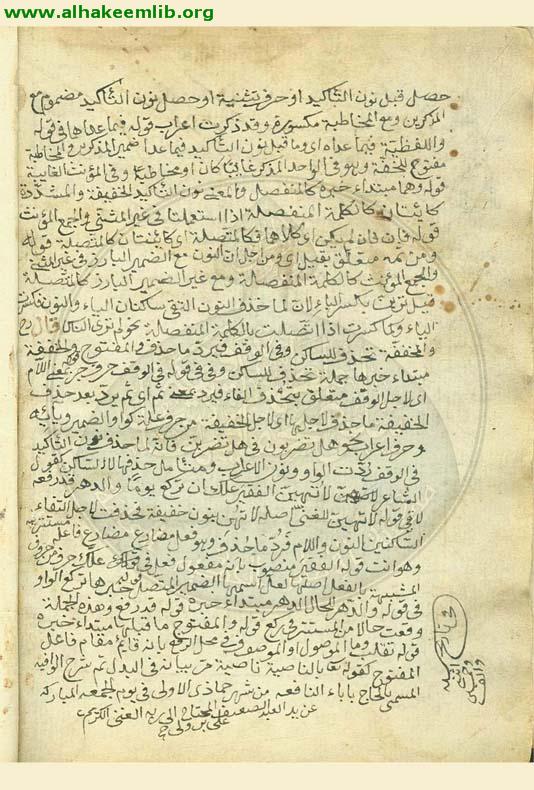 www.alhakeemlib.org
حصل قبل نون التاكيد او حرف تثنية او حصل نون التاكيد مضموم مع
المذكرين ومع المخاطبة مكسورة وقد ذكرت اعراب قوله فيما عداها في قوله
واللفظية فيما عداه اى وما قبل نون التاكيد فيما عدا ضمير المذكرين والمخاطبة
مفتوح للخفة وهو في الواحد المذكر غائبا كان او مخاطبا وفي المؤنث الغايبة
قوله وهما مبتداء خبره كالمنفصل والمعنى نون التاكيد الخفيفة والمشددة
كائنتان كالكلمة المنفصلة اذا استعملتا في غير المثنى والجمع المؤنث
قوله فان فان لم يكن اى كلاهما فكالمتصلة اى كائنتان كالمتصلة قوله
ومن ثمه متعلق بقيل اى ومن اجل ان النون مع الضمير البارز في غير المثنى
والجمع المؤنث كالكلمة المنفصلة ومع غير الضمير البارز كالمتصلة
قيل ترين بكسر الياء لان لما حذف النون التقى ساكنان الياء والنون فكسرت
الياء وكما كسرت اذا اتصلت بالكلمة المنفصلة نحو لم ترى الناس قال
والمخففة تحذف للساكن وفي الوقف فيرد ما حذف والمفتوح والمخففة
مبتداء خبرها جملة تحذف للساكن وفي في قوله في الوقف حرف جر بمعنى اللام
اى لاجل الوقف متعلق بتحذف الفاء فيرد بمعنى ثم اى ثم يرد بعد حذف
الخفيفة ما حذف لاجلها اى لاجل الخفيفة من حرف علة كواو الضمير ويائه
وحرف اعراب نحو هل تضربون في هل تضربن فانه لما حذف نون التاكيد
في الوقف ردت الواو ونون الاعراب ومثال حذفها لالساكن كقول
الشاعر لا تهين الفقير علك ان تركع يوما والدهر قد رفعه
في قوله لا تهين للغنى اصله لا تهن بنون خفيفة فحذفت لاجل التقاء
الساكنين النون واللام فرد ما حذف وهو فعل مضارع فاعله مستتر فيه
وهو انت قوله الفقير منصوب بانه مفعول فعل قوله علك حرف من حروف
المشبهة بالفعل اصلها لعل اسمها الضمير المتصل خبرها تركع الواو
في قوله والدهر للحال الدهر مبتداء خبره قوله قد رفع وهذه الجملة
وقعت حالا من المستتر في تركع قوله والمفتوح ما قبلها مبتداء خبره
قوله تقلب وما الموصول او الموصوف في محل الرفع بانه قائم مقام فاعل
المفتوح كقوله تعا بالناصية ناصية مر بيانه في البدل تم شرح الوافيه
المسمى بالحاج باباء النافعه من شهر جماذى الاولى في يوم الجمعه المباركه
عن يد العبد الضعيف المحتاج الى ربه الغنى الكريم
على بن ولى